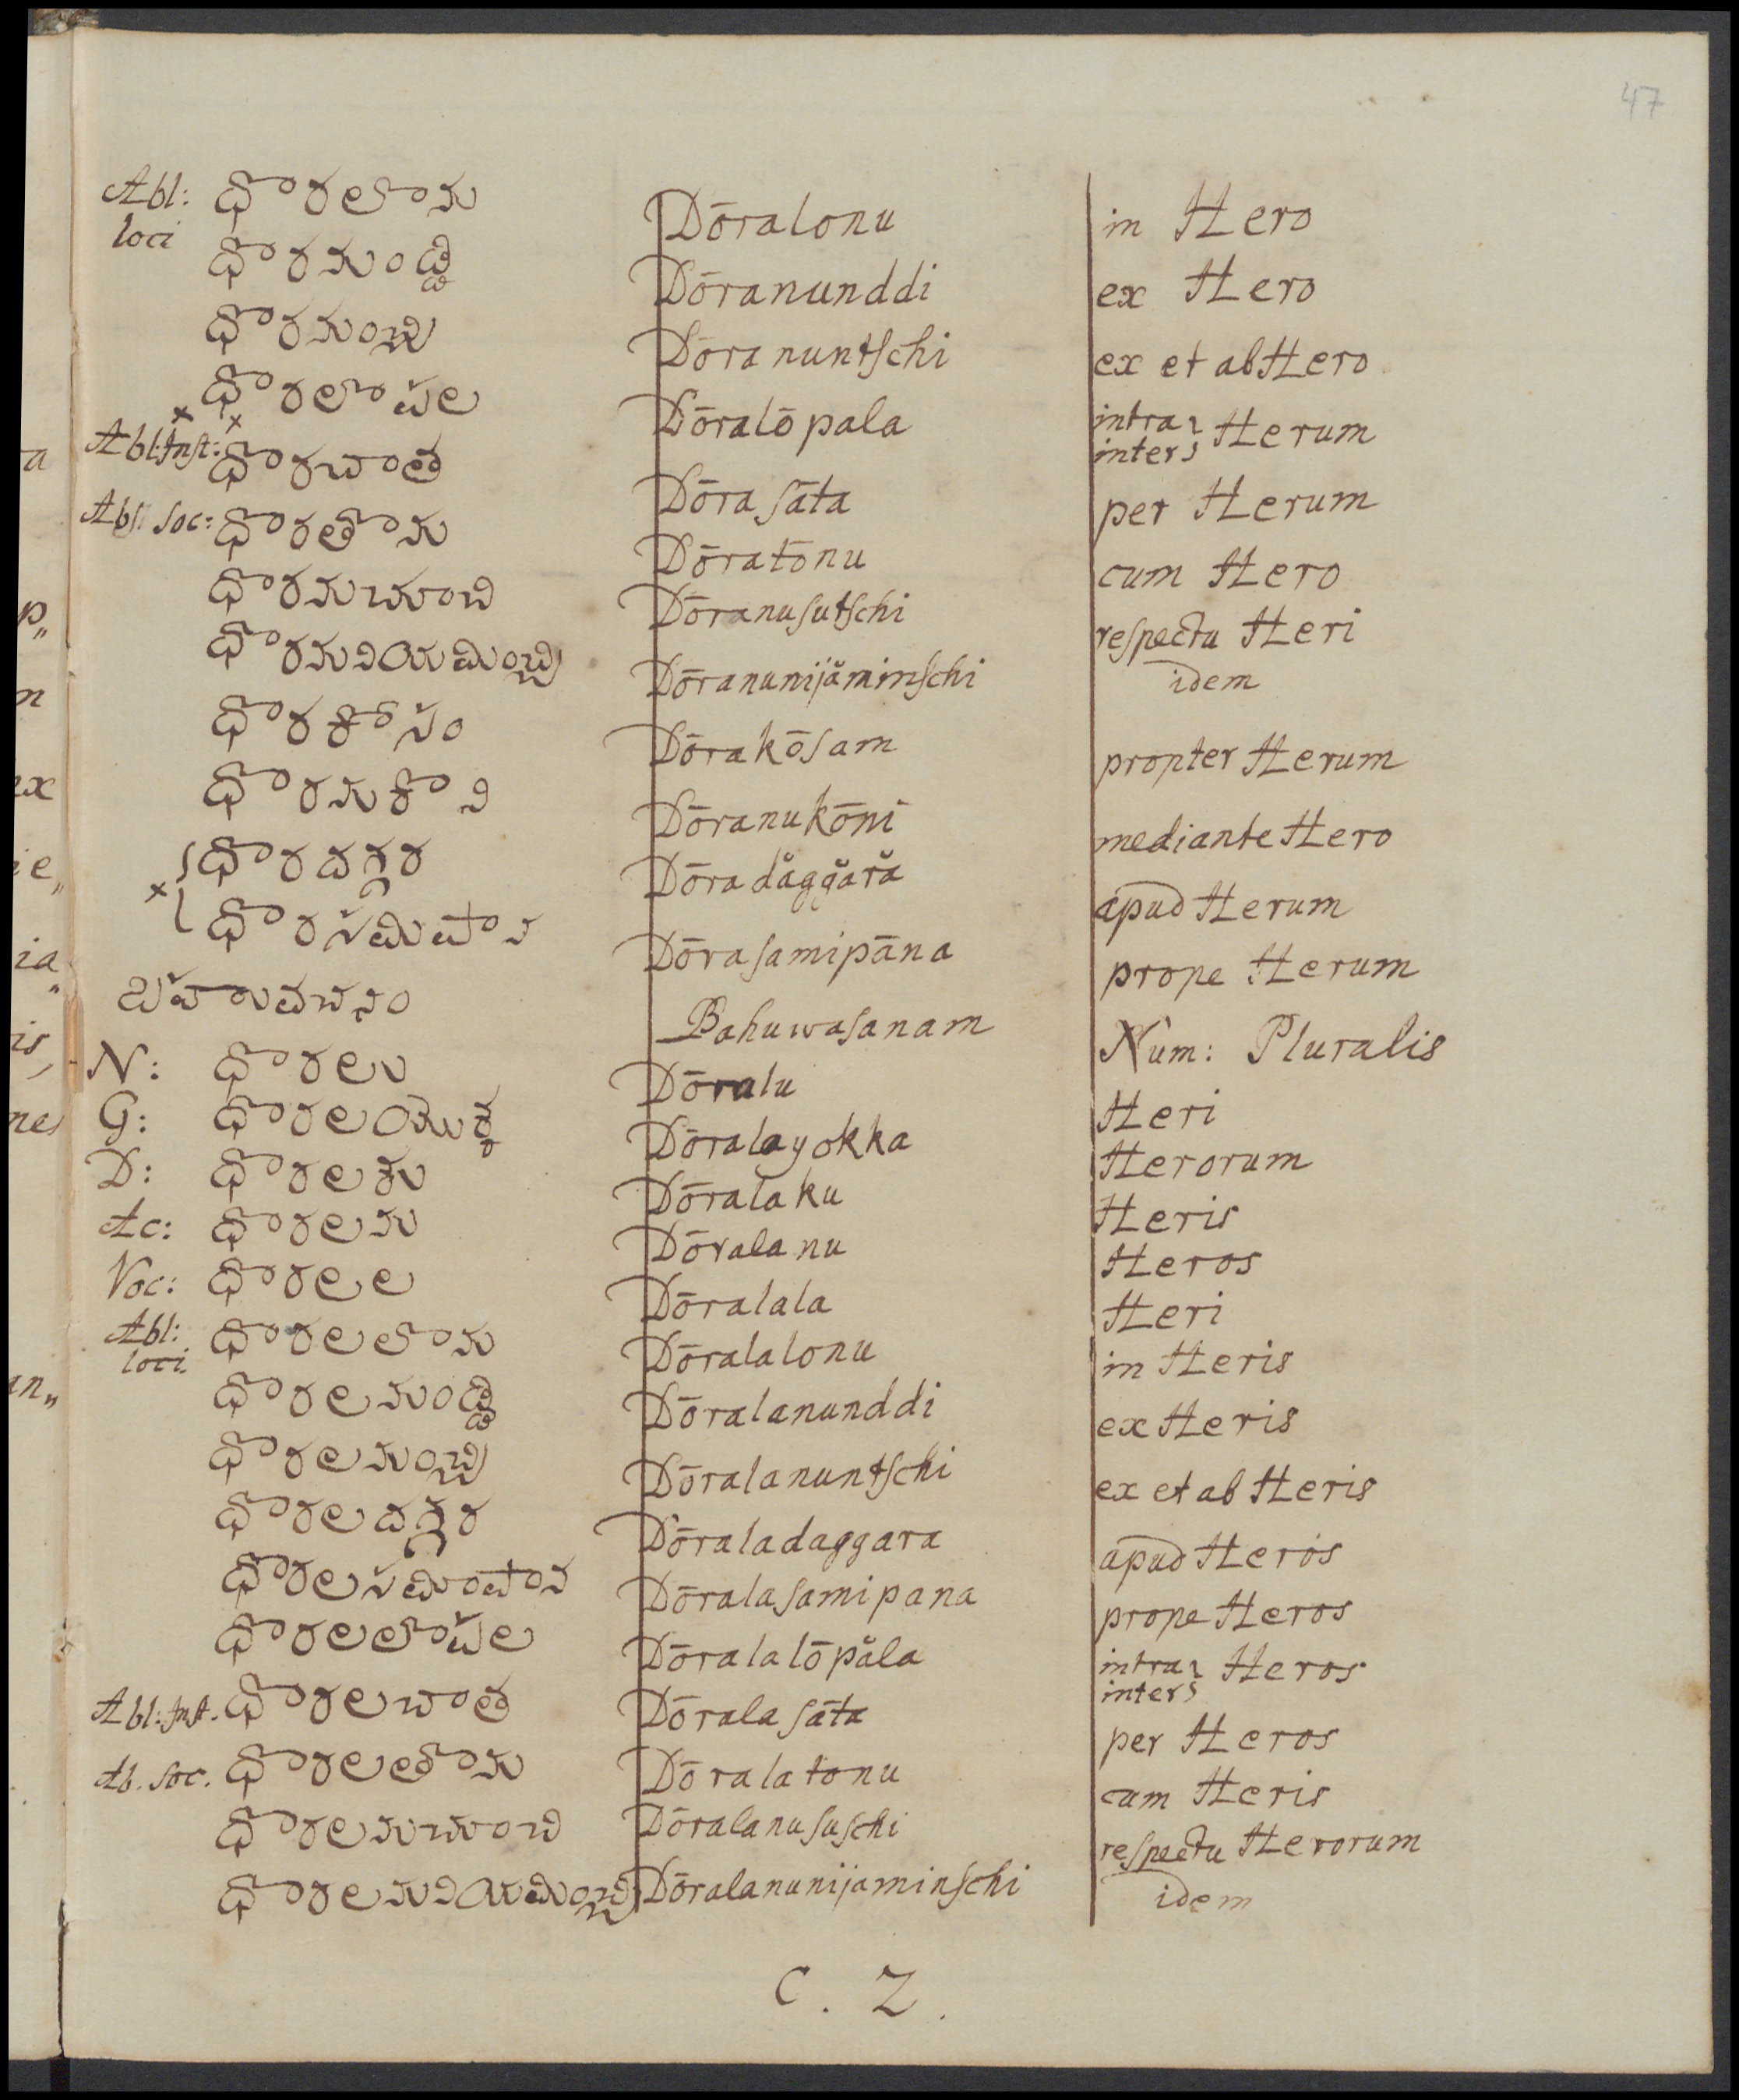 47
Abl: loci ధొరలొను Dōralonu in Hero
ధొరనుండ్డి Dōranunddi ex Hero
ధొరనుంచ్చి Dōranuntschi ex et ab Hero
ధొరలొపల Dōralōpala intra inter Herum
Abl: Inst: ధొరచాత Dōra sāta per Herum
Abl: Soc: ధొరతొను Dōratōnu cum Hero
ధొరనుచూంచి Dōranusutschi respectu Heri
ధొరనునియమించ్చి Dōranunijäminschi idem
ధొరకోసం Dōrakōsam propter Herum
ధొరనుకొని Dōranukōni mediante Hero
ధొరదగ్గర Dōradăggără apud Herum
x ధొరసమిపాన Dōrasamipāna prope Herum
బహువచనం Bahuwasanam Num: Pluralis
N: ధొరలు Dōralu Heri
G: ధొరలయొక్క Dōralayokka Herorum
D: ధొరలకు Dōralaku Heris
Ac: ధొరలను Dōralanu Heros
Voc: ధొరలల Dōralala Heri
Abl: loci ధొరలలొను Dōralalonu in Heris
ధొరలనుండ్డి Dōralanunddi ex Heris
ధొరలనుంచ్చి Dōralanuntschi ex et ab Heris
ధొరలదగ్గర Dōraladaggara apud Heros
ధొరలసమిపాన Dōralasamipana prope Heros
ధొరలలొపల Dōralalōpăla intra inter Heros
Abl: Inst. ధొరలచాత Dōrala sāta per Heros
Ab. Soc. ధొరలతొను Dōralatonu cum Heris
ధొరలనుచూంచి Dōralanususchi respectu Herorum
ధొరలనునియమించ్చి Dōralanunijaminschi idem
C. Z.